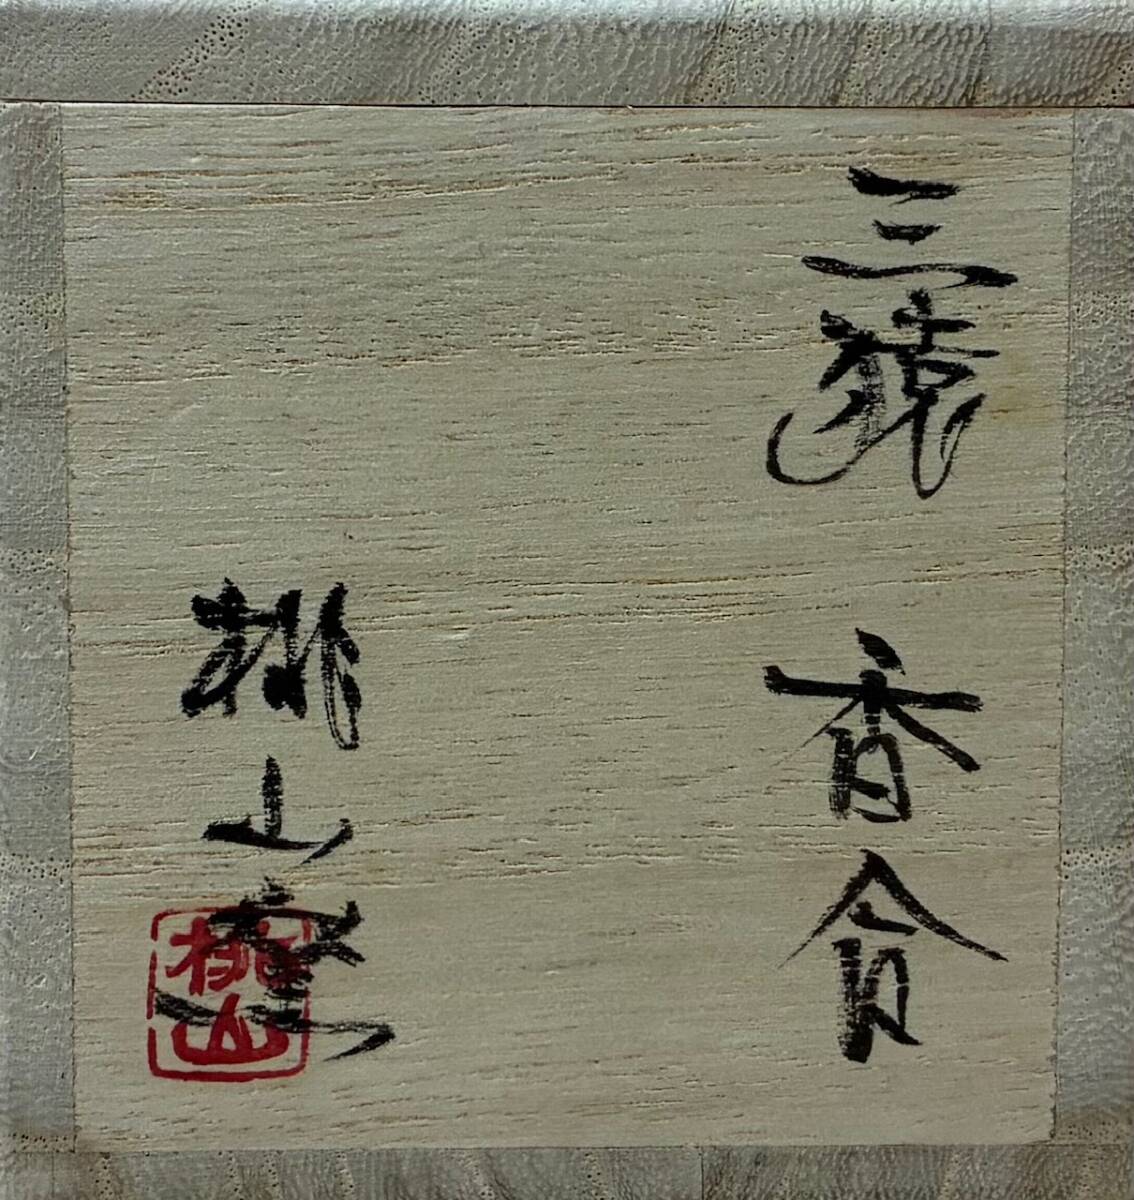 三猿 香合
桃山
桃山